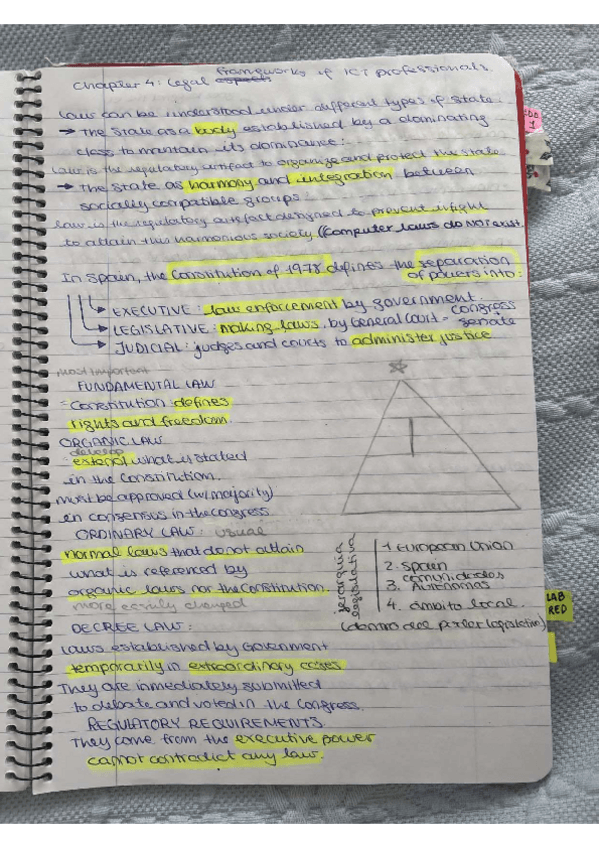 Chapter 4: Legal frameworks of ICT professionals.
Law can be understood under different types of state.
→ The state as a body established by a dominating
class to maintain its dominance:
Law is the regulatory artifact to organize and protect the state
→ The state as harmony and integration between
socially compatible groups:
law is the regulatory artefact designed to prevent
to attain this harmonious society (Computer laws do not exist
In Spain, the Constitution of 1978 defines the separation
of powers into:
EXECUTIVE: law enforcement by government.
LEGISLATIVE: making laws by General Court = congress
senate
JUDICIAL: judges and courts to administer justice
most important
FUNDAMENTAL LAW
- Constitution: defines
rights and freedom.
ORGANIC LAW
develop
extend what is stated
in the Constitution.
must be approved (w/ majority)
in consensus in the congress
ORDINARY LAW: usual
normal laws that do not attain
what is referenced by
organic laws nor the Constitution.
more easily changed
jerarquia
legislativa
1. European Union
2. Spain
3. comunidades
Autonomas
4. ámbito local.
(dentro del poder legislativo)
DECREE LAW:
laws established by Government
temporarily in extraordinary cases
They are inmediately submitted
to debate and voted in the Congress.
REGULATORY REQUIREMENTS
They come from the executive power
cannot contradict any law.
LAB
RED